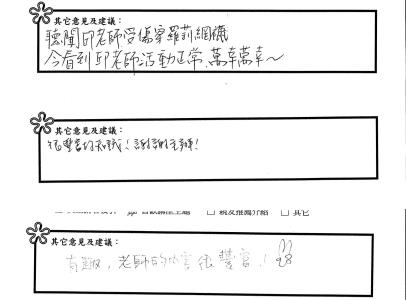 其它意見及建議：
聽聞邱老師受傷穿羅莉網襪
今看到邱老師活動正常，萬幸萬幸～
其它意見及建議：
很豐富的知識！謝謝主辦！
親友推薦介紹 □ 其它
其它意見及建議：
有趣，老師的內容很豐富！